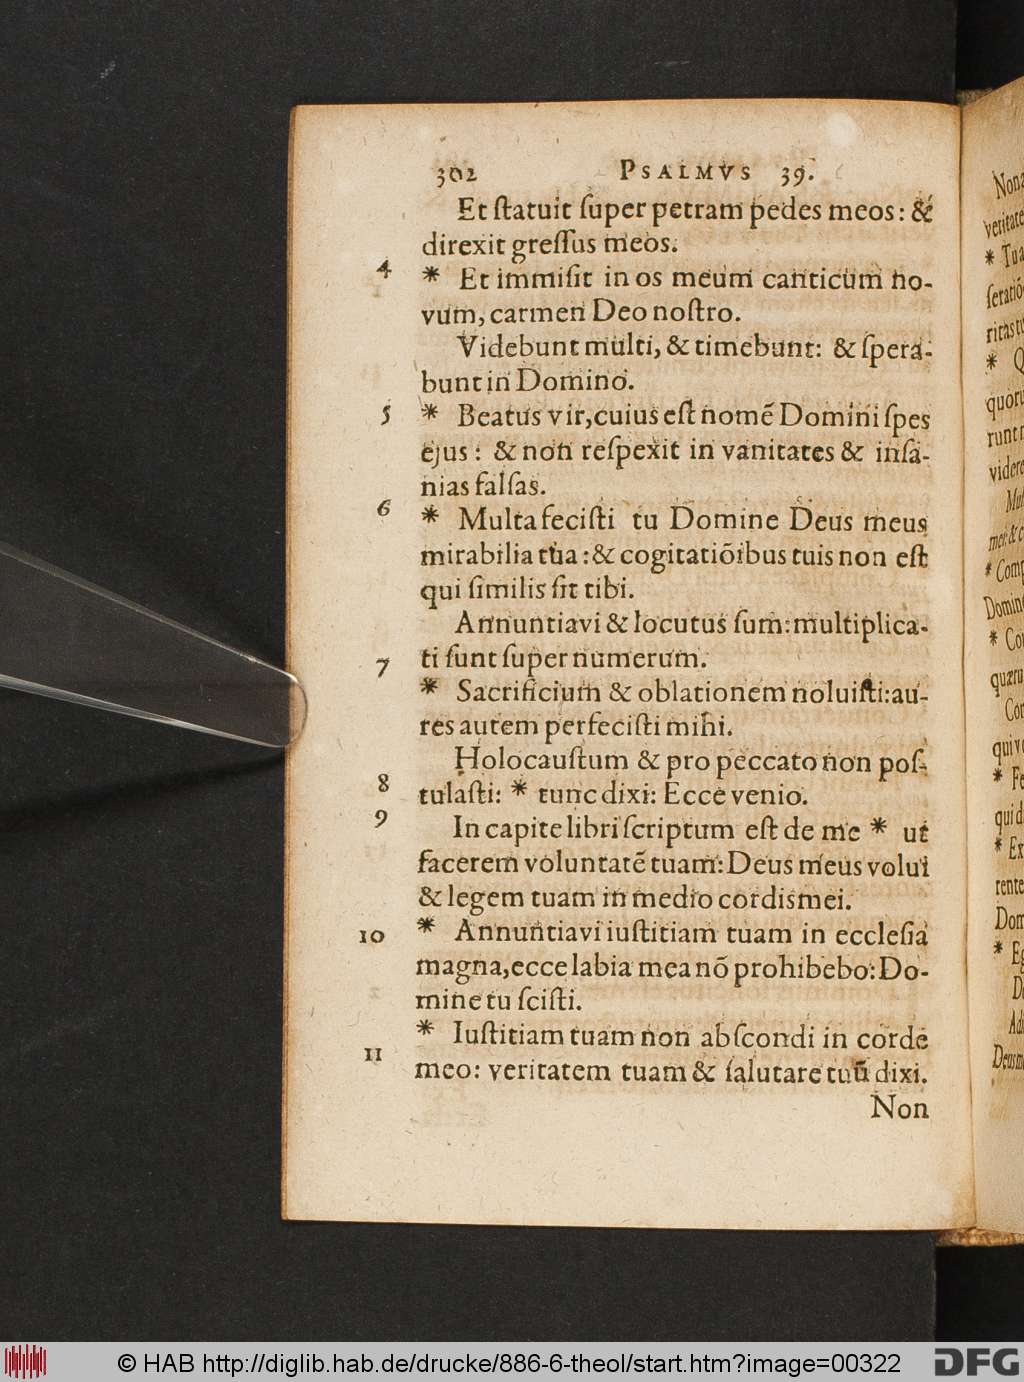 302 PSALMVS 39.
Et ſtatuit ſuper petram pedes meos: &
direxit greſſus meos.
4 * Et immiſit in os meum canticum no-
vum, carmen Deo noſtro.
Videbunt multi, & timebunt: & ſpera-
bunt in Domino.
5 * Beatus vir, cuius eſt nomẽ Domini ſpes
ejus: & non reſpexit in vanitates & inſa-
nias falſas.
6 * Multa feciſti tu Domine Deus meus
mirabilia tua: & cogitatiõibus tuis non eſt
qui ſimilis ſit tibi.
Annuntiavi & locutus ſum: multiplica-
ti ſunt ſuper numerum.
7 * Sacrificium & oblationem noluiſti: au-
res autem perfeciſti mihi.
Holocauſtum & pro peccato non poſ-
8 tulaſti: * tunc dixi: Ecce venio.
9 In capite libri ſcriptum eſt de me * ut
facerem voluntatẽ tuam: Deus meus volui
& legem tuam in medio cordis mei.
10 * Annuntiavi iuſtitiam tuam in eccleſia
magna, ecce labia mea nõ prohibebo: Do-
mine tu ſciſti.
* Iuſtitiam tuam non abſcondi in corde
11 meo: veritatem tuam & ſalutare tuũ dixi.
Non
Nona
veritate
* Tua
ſeratiõ
* Q
quoru
runt
videre
Mul
mei: & c
* Comp
Domin
* Co
quæru
Con
qui v
* Fe
qui d
* Ex
rente
Dom
* Eg
D
Deus m
© HAB http://diglib.hab.de/drucke/886-6-theol/start.htm?image=00322
DFG